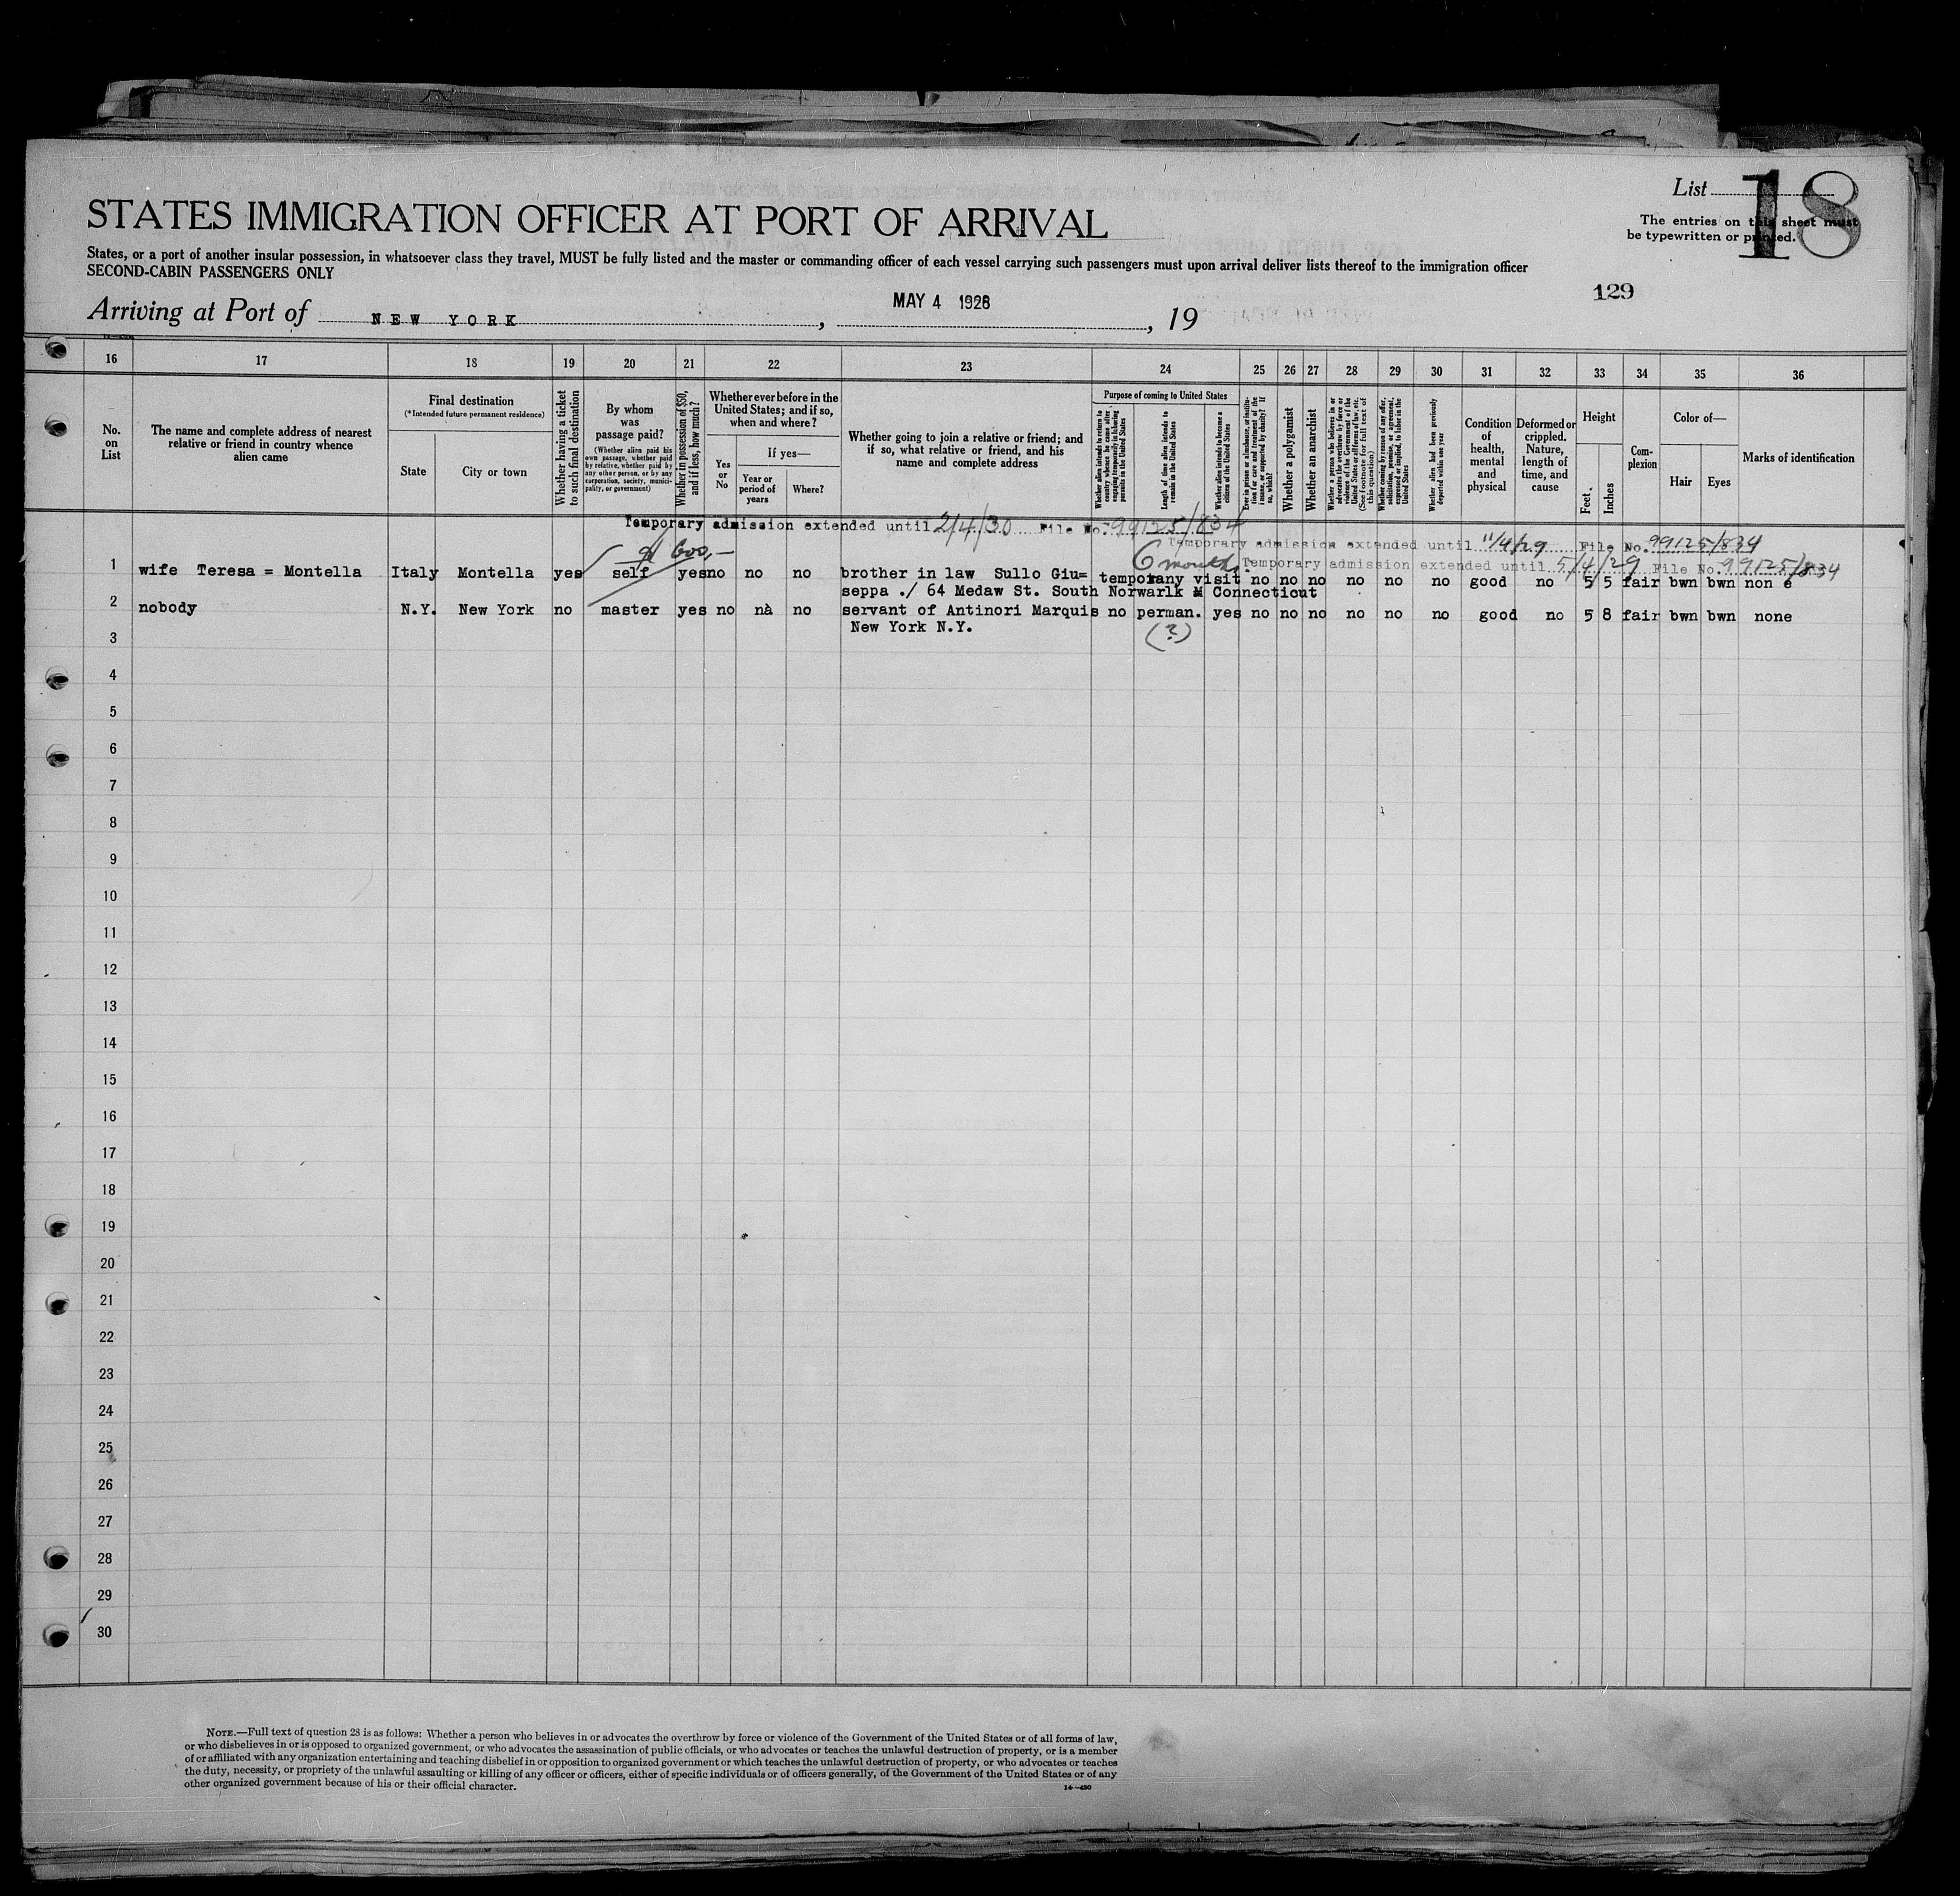 List 18
STATES IMMIGRATION OFFICER AT PORT OF ARRIVAL
The entries on this sheet must
be typewritten or printed.
States, or a port of another insular possession, in whatsoever class they travel, MUST be fully listed and the master or commanding officer of each vessel carrying such passengers must upon arrival deliver lists thereof to the immigration officer
SECOND-CABIN PASSENGERS ONLY
129
Arriving at Port of NEW YORK, MAY 4 1928, 19
16 17 18 19 20 21 22 23 24 25 26 27 28 29 30 31 32 33 34 35 36
No. on List
The name and complete address of nearest relative or friend in country whence alien came
Final destination
(*Intended future permanent residence)
State
City or town
Whether having a ticket to such final destination
By whom was passage paid?
(Whether alien paid his own passage, whether paid by relative, whether paid by any other person, or by any corporation, society, municipality, or government)
Whether in possession of $50, and if less, how much?
Whether ever before in the United States; and if so, when and where?
Yes or No
If yes—
Year or period of years
Where?
Whether going to join a relative or friend; and if so, what relative or friend, and his name and complete address
Purpose of coming to United States
Whether alien intends to return to country whence he came after engaging temporarily in laboring pursuits in the United States
Length of time alien intends to remain in the United States
Whether alien intends to become a citizen of the United States
Ever in prison or almshouse, or institution for care and treatment of the insane, or supported by charity? If so, which?
Whether a polygamist
Whether an anarchist
Whether a person who believes in or advocates the overthrow by force or violence of the Government of the United States or all forms of law, etc. (See footnote for full text of this question)
Whether coming by reason of any offer, solicitation, promise, or agreement, expressed or implied, to labor in the United States
Whether alien had been previously deported within one year
Condition of health, mental and physical
Deformed or crippled. Nature, length of time, and cause
Height
Feet
Inches
Complexion
Color of—
Hair
Eyes
Marks of identification
Temporary admission extended until 2/4/30 File No. 99125/834
Temporary admission extended until 11/4/29 File No. 99125/834
6 months Temporary admission extended until 5/4/29 File No. 99125/834
600,—
1 wife Teresa = Montella Italy Montella yes self yes no no no brother in law Sullo Giu= temporary visit no no no no no no good no 5 5 fair bwn bwn non e
seppa ./ 64 Medaw St. South Norwarlk M Connecticut
2 nobody N.Y. New York no master yes no nà no servant of Antinori Marquis no perman. yes no no no no no no good no 5 8 fair bwn bwn none
New York N.Y. (?)
3
4
5
6
7
8
9
10
11
12
13
14
15
16
17
18
19
20
21
22
23
24
25
26
27
28
29
30
NOTE.—Full text of question 28 is as follows: Whether a person who believes in or advocates the overthrow by force or violence of the Government of the United States or of all forms of law,
or who disbelieves in or is opposed to organized government, or who advocates the assassination of public officials, or who advocates or teaches the unlawful destruction of property, or is a member
of or affiliated with any organization entertaining and teaching disbelief in or opposition to organized government or which teaches the unlawful destruction of property, or who advocates or teaches
the duty, necessity, or propriety of the unlawful assaulting or killing of any officer or officers, either of specific individuals or of officers generally, of the Government of the United States or of any
other organized government because of his or their official character.
14—430